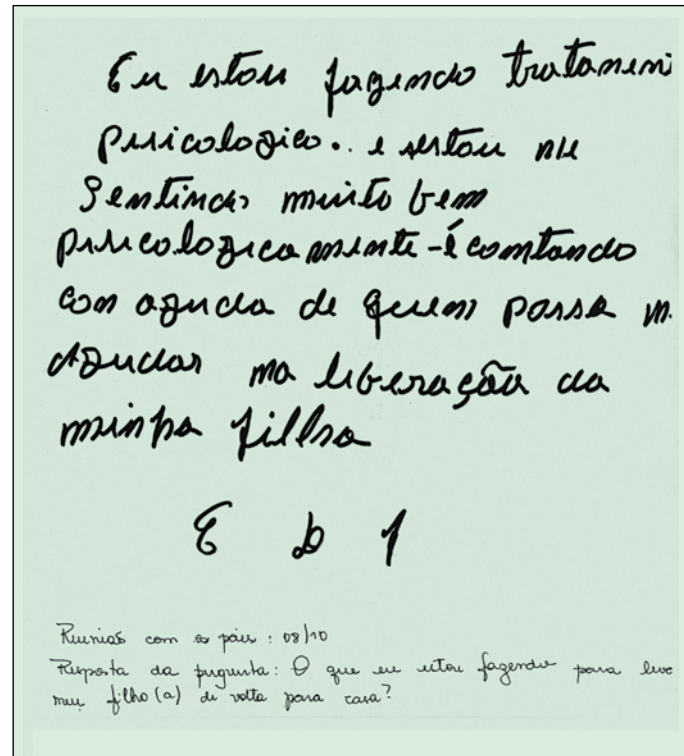 Eu estou fazendo tratamen
psicologico.. e estou me
Sentindo muito bem
psicologicamente - é comtando
com ajuda de quem possa m
Ajudar na liberação da
minha filha
E b f
Reunião com os pais: 08/10
Resposta da pergunta: O que eu estou fazendo para leva
meu filho(a) de volta para casa?